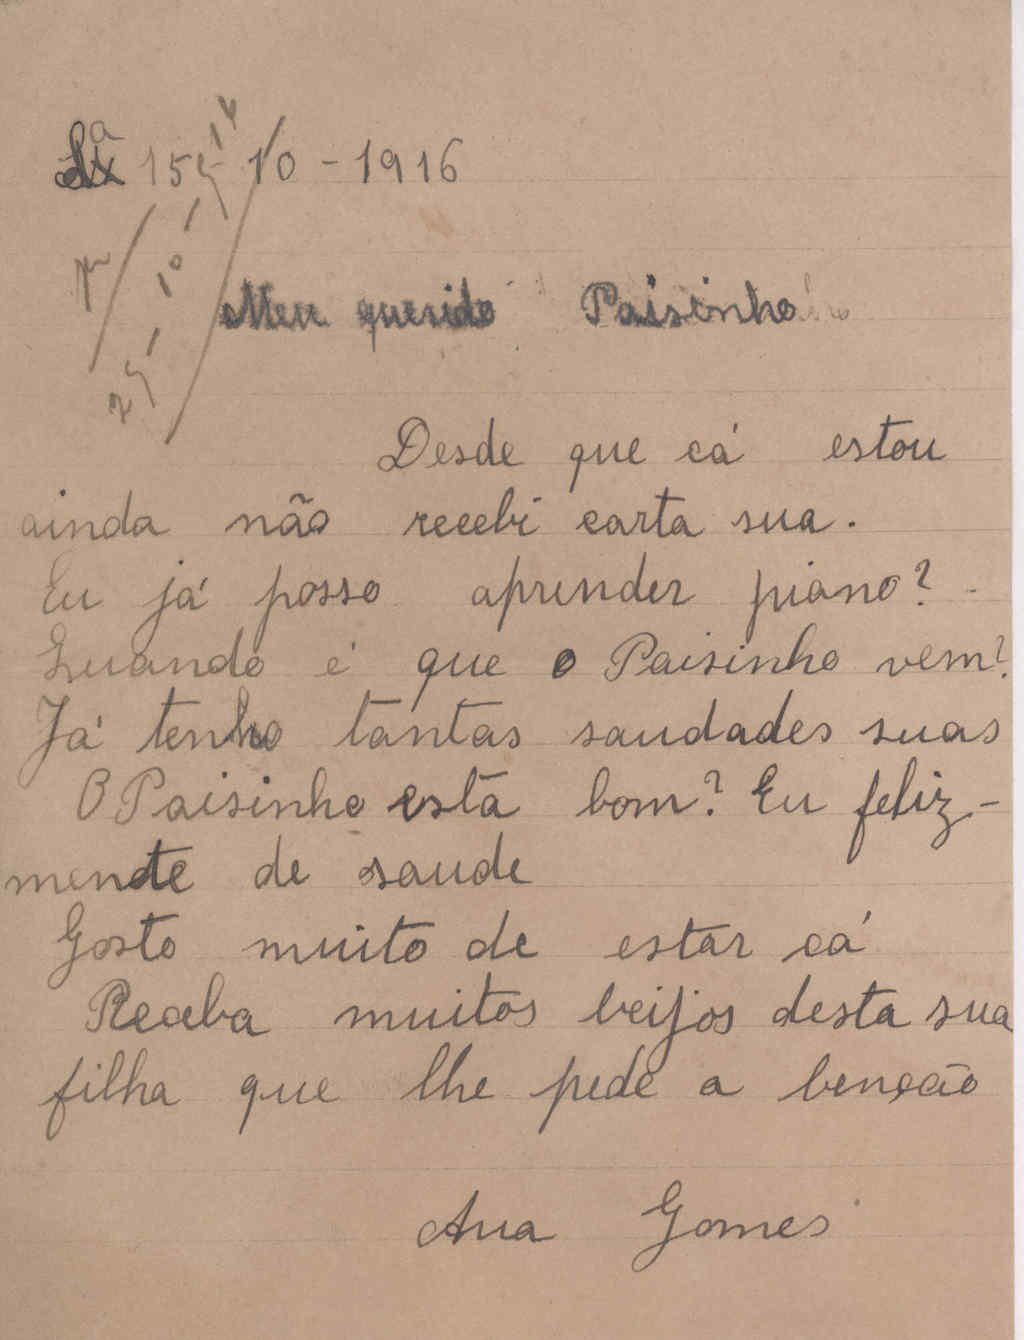 Lxª 15-10-1916
Meu querido Paisinho
Desde que cá estou
ainda não recebi carta sua.
Eu já posso aprender piano?
Quando é que o Paisinho vem?
Já tenho tantas saudades suas
O Paisinho está bom? Eu feliz-
mente de saude
Gosto muito de estar cá
Receba muitos beijos desta sua
filha que lhe pede a benção
Ana Gomes